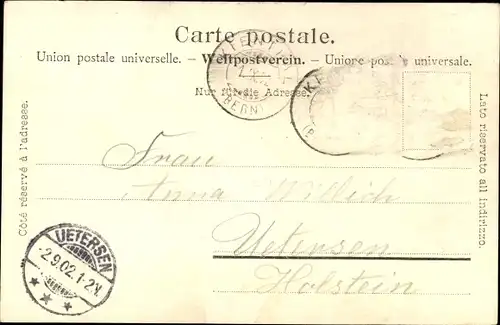 Carte postale.
Union postale universelle. – Weltpostverein. – Unione postale universale.
Nur für die Adresse.
(BERN)
K
Côté réservé à l'adresse.
Lato riservato all indirizzo.
Frau
Anna Willich
Uetersen
Holstein
UETERSEN
-2.9.02.1-2N.